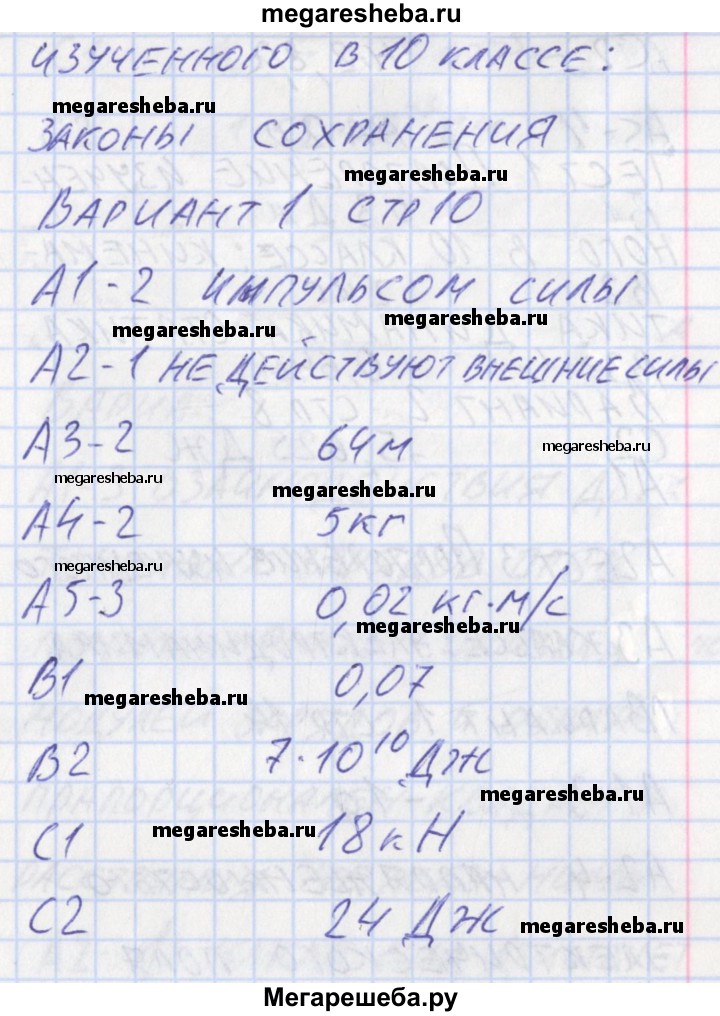 megaresheba.ru
ИЗУЧЕННОГО В 10 КЛАССЕ:
megaresheba.ru
ЗАКОНЫ СОХРАНЕНИЯ
megaresheba.ru
ВАРИАНТ 1 СТР 10
А1-2 ИМПУЛЬСОМ СИЛЫ
megaresheba.ru megaresheba.ru
А2-1 НЕ ДЕЙСТВУЮТ ВНЕШНИЕ СИЛЫ
А3-2 64 м megaresheba.ru
megaresheba.ru megaresheba.ru
А4-2 5 кг
megaresheba.ru
А5-3 0,02 кг·м/с
megaresheba.ru
В1 0,07
megaresheba.ru
В2 7·10¹⁰ ДЖ
megaresheba.ru
С1 18 кН
megaresheba.ru
С2 24 ДЖ megaresheba.ru
Мегарешеба.ру